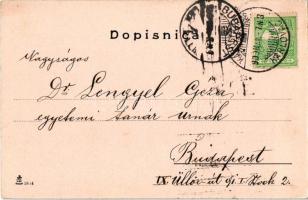 Dopisnica
Nagyságos
Dr Lengyel Géza
egyetemi tanár urnak
Budapest
IX. Üllői út 91. I.